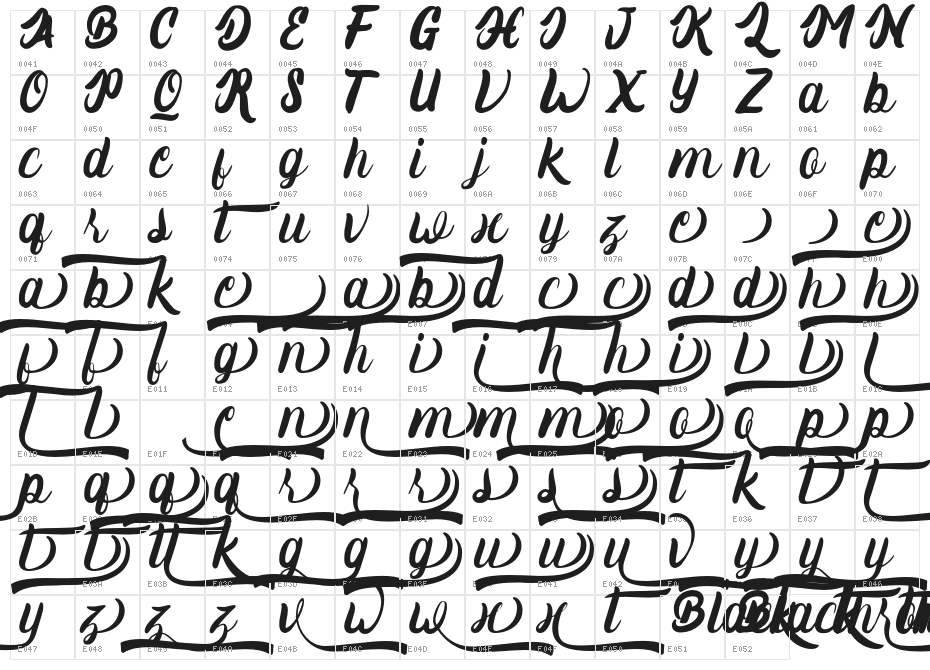 A B C D E F G H I J K L M N
0041 0042 0043 0044 0045 0046 0047 0048 0049 004A 004B 004C 004D 004E
O P Q R S T U V W X Y Z a b
004F 0050 0051 0052 0053 0054 0055 0056 0057 0058 0059 005A 0061 0062
c d e f g h i j k l m n o p
0063 0064 0065 0066 0067 0068 0069 006A 006B 006C 006D 006E 006F 0070
q r s t u v w x y z e ) ) e
0071 0074 0075 0076 0079 007A 007B 007C E000
a b k e ) a b d c c d d h h
E007 E00C E00E
f f f g n h i i h h i l l l
E011 E012 E013 E014 E015 E016 E017 E019 E01A E01B
l l e n n m m m o o o p p
E01E E01F E021 E022 E023 E024 E025 E02A
p q q q r r r s s s t k t t
E02B E02F E031 E032 E034 E036 E037 E038
t t tt k g g g u u u v y y y
E03A E03B E03C E03D E03F E041 E042 E046
y z z z v w w x x t Black Black
E047 E048 E049 E04A E04B E04C E04D E04E E04F E050 E051 E052